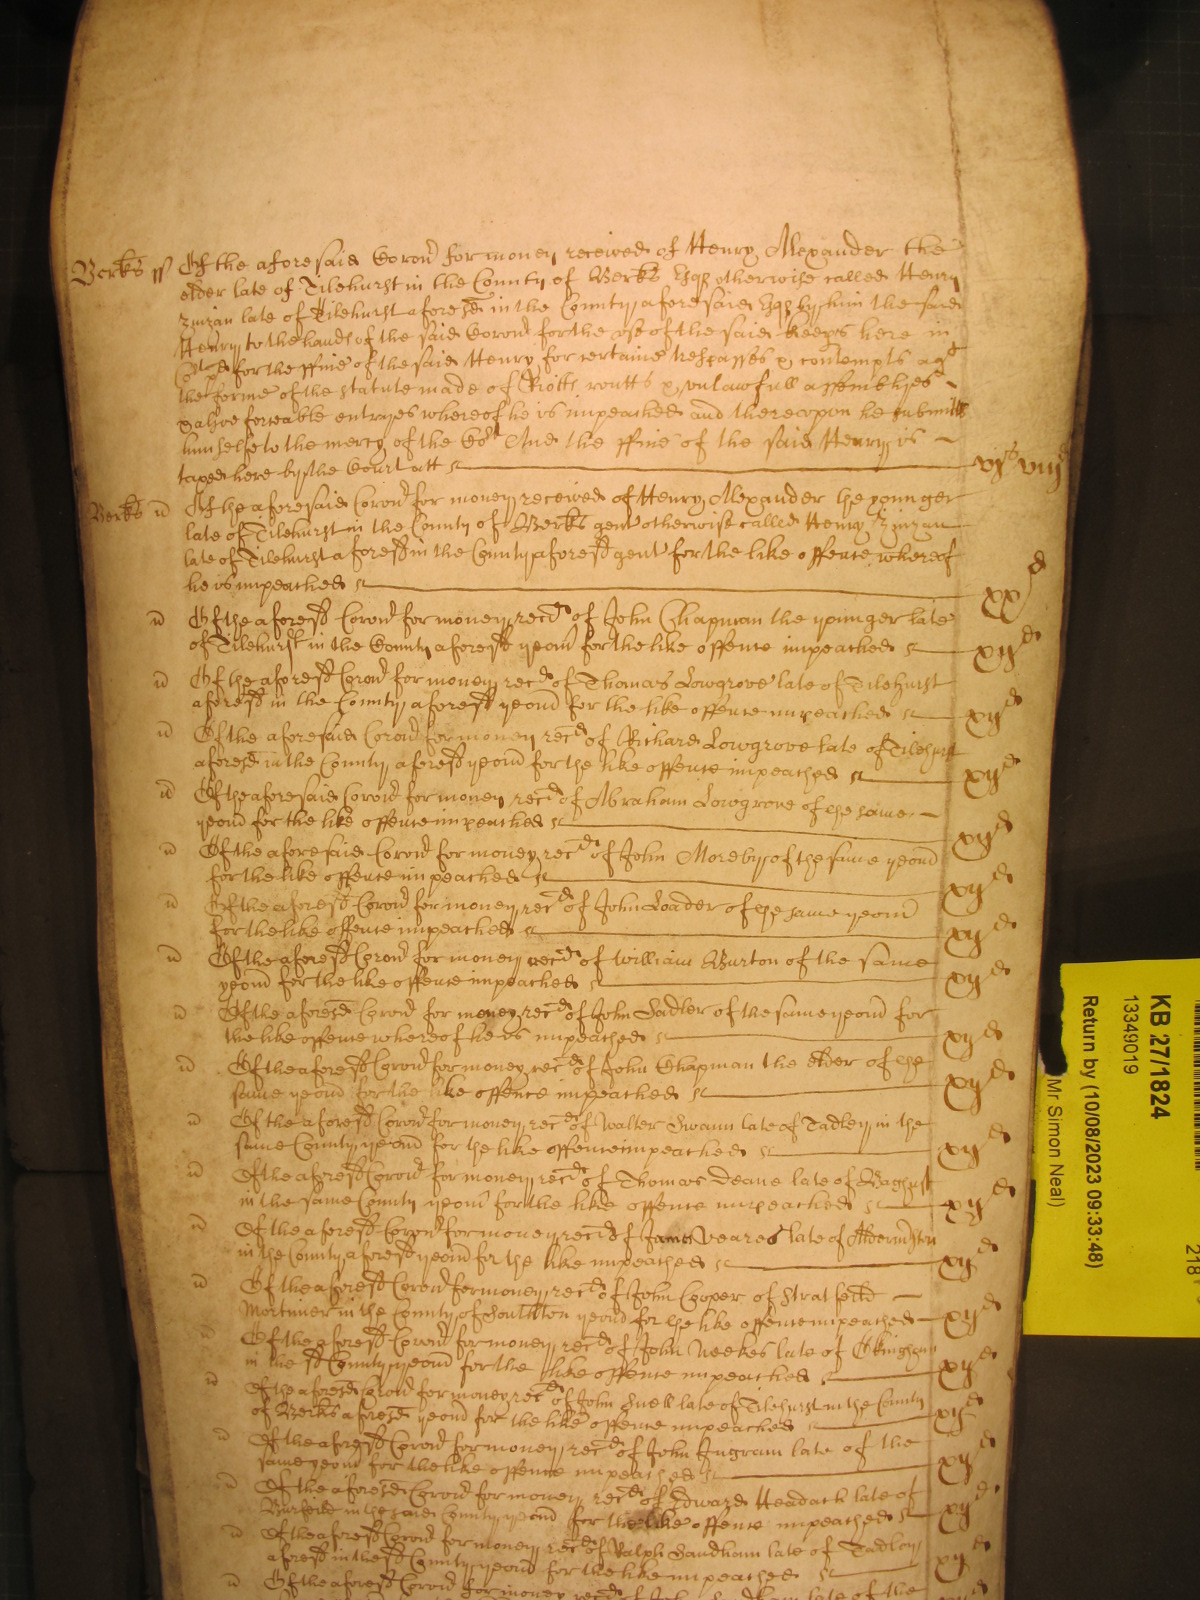 Berks ss Of the aforesaid Coron̄ for money received of Henry Alexander the
elder late of Tilehurst in the County of Berks Esqr otherwise called Henry
Zinzan late of Tilehurst aforesd in the County aforesaid Esqr by him the said
Henry to the hands of the said Coron̄ for the use of the said Keeps here in
Court for the ffine of the said Henry for certaine trespasses & contempts agt
the forme of the statute made of Riotts routts & unlawfull assemblyes
& alsoe forceable entryes whereof he is impeached and thereupon he submitts
himselfe to the mercy of the Cort And the ffine of the said Henry is
taxed here by the Court att vjs viijd
Berks ss Of the aforesaid Coron̄ for money received of Henry Alexander the younger
late of Tilehurst in the County of Berks gent otherwise called Henry Zinzan
late of Tilehurst aforesd in the County aforesd gent for the like offence whereof
he is impeached xxd
ss Of the aforesd Coron̄ for money recd of John Chapman the younger late
of Tilehurst in the County aforesd yeom̄ for the like offence impeached xijd
ss Of the aforesd Coron̄ for money recd of Thomas Lowgrove late of Tilehurst
aforesd in the County aforesd yeom̄ for the like offence impeached xijd
ss Of the aforesaid Coron̄ for money recd of Richard Lowgrove late of Tilehurst
aforesd in the County aforesd yeom̄ for the like offence impeached xijd
ss Of the aforesaid Coron̄ for money recd of Abraham Lowgrove of the same
yeom̄ for the like offence impeached xijd
ss Of the aforesaid Coron̄ for money recd of John Moreby of the same yeom̄
for the like offence impeached xijd
ss Of the aforesd Coron̄ for money recd of John Loader of the same yeom̄
for the like offence impeached xijd
ss Of the aforesd Coron̄ for money recd of William Burton of the same
yeom̄ for the like offence impeached xijd
ss Of the aforesd Coron̄ for money recd of John Sadler of the same yeom̄ for
the like offence whereof he is impeached xijd
ss Of the aforesd Coron̄ for money recd of John Chapman the elder of the
same yeom̄ for the like offence impeached xijd
ss Of the aforesd Coron̄ for money recd of Walter Swann late of Tadley in the
same County yeom̄ for the like offence impeached xijd
ss Of the aforesd Coron̄ for money recd of Thomas Deane late of Baghurst
in the same County yeom̄ for the like offence impeached xijd
ss Of the aforesd Coron̄ for money recd of James Veares late of Alderm̄ston
in the County aforesd yeom̄ for the like impeached xijd
ss Of the aforesd Coron̄ for money recd of John Cooper of Stratfeild
Mortimer in the County of Southton yeom̄ for the like offence impeached xijd
ss Of the aforesd Coron̄ for money recd of John Weekes late of Okingham
in the sd County yeom̄ for the like offence impeached xijd
ss Of the aforesd Coron̄ for money recd of John Snell late of Tilehurst in the County
of Berks aforesd yeom̄ for the like offence impeached xijd
ss Of the aforesd Coron̄ for money recd of John Ingram late of the
same yeom̄ for the like offence impeached xijd
ss Of the aforesd Coron̄ for money recd of Edward Headach late of
Burfeild in the said County yeom̄ for the like offence impeached xijd
ss Of the aforesd Coron̄ for money recd of Ralph Sandham late of Tadley
aforesd in the sd County yeom̄ for the like impeached xijd
ss Of the aforesd Coron̄ for money recd of John Sandham late of the
KB 27/1824
13349019
Return by (10/08/2023 09:33:48)
Mr Simon Neal)
218